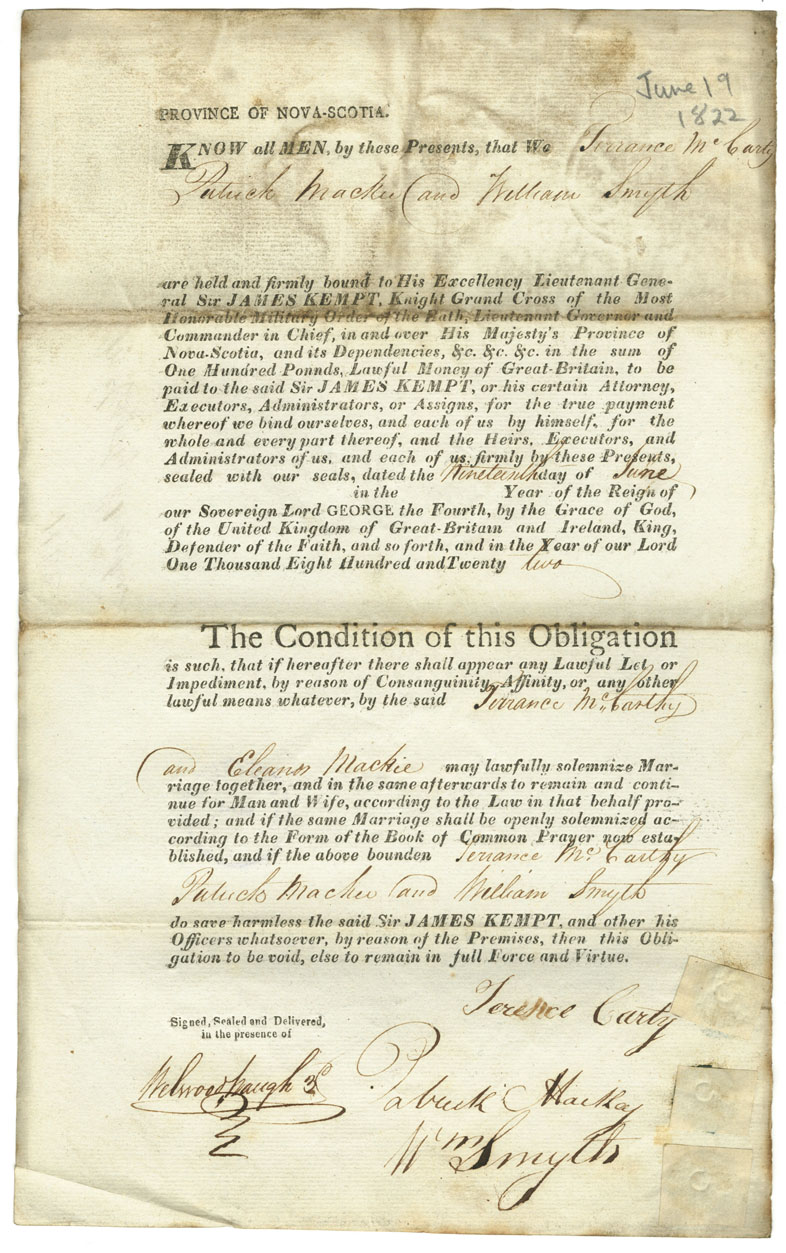 June 19
1822
PROVINCE OF NOVA-SCOTIA.
KNOW all MEN, by these Presents, that We Terrance Mc Carty
Patrick Mackie and William Smyth
are held and firmly bound to His Excellency Lieutenant Gene-
ral Sir JAMES KEMPT, Knight Grand Cross of the Most
Honorable Military Order of the Bath, Lieutenant Governor and
Commander in Chief, in and over His Majesty's Province of
Nova-Scotia, and its Dependencies, &c. &c. &c. in the sum of
One Hundred Ponnds, Lawful Money of Great-Britain, to be
paid to the said Sir JAMES KEMPT, or his certain Attorney,
Executors, Administrators, or Assigns, for the true payment
whereof we bind ourselves, and each of us by himself, for the
whole and every part thereof, and the Heirs, Executors, and
Administrators of us, and each of us, firmly by these Presents,
sealed with our seals, dated the Nineteenth day of June
in the Year of the Reign of
our Sovereign Lord GEORGE the Fourth, by the Grace of God,
of the United Kingdom of Great-Britain and Ireland, King,
Defender of the Faith, and so forth, and in the Year of our Lord
One Thousand Eight Hundred andTwenty two
The Condition of this Obligation
is such, that if hereafter there shall appear any Lawful Let or
Impediment, by reason of Consanguinity, Affinity, or any other
lawful means whatever, by the said Terrance Mc Carthy
and Eleanor Mackie may lawfully solemnize Mar-
riage together, and in the same afterwards to remain and conti-
nue for Man and Wife, according to the Law in that behalf pro-
vided; and if the same Marriage shall be openly solemnized ac-
cording to the Form of the Book of Common Prayer now esta-
blished, and if the above bounden Terrance Mc Carthy
Patrick Mackie and William Smyth
do save harmless the said Sir JAMES KEMPT, and other his
Officers whatsoever, by reason of the Premises, then this Obli-
gation to be void, else to remain in full Force and Virtue.
Terence Carty
Signed, Sealed and Delivered,
in the presence of
Welwood Waugh
Patrick Mackay
Wm Smyth